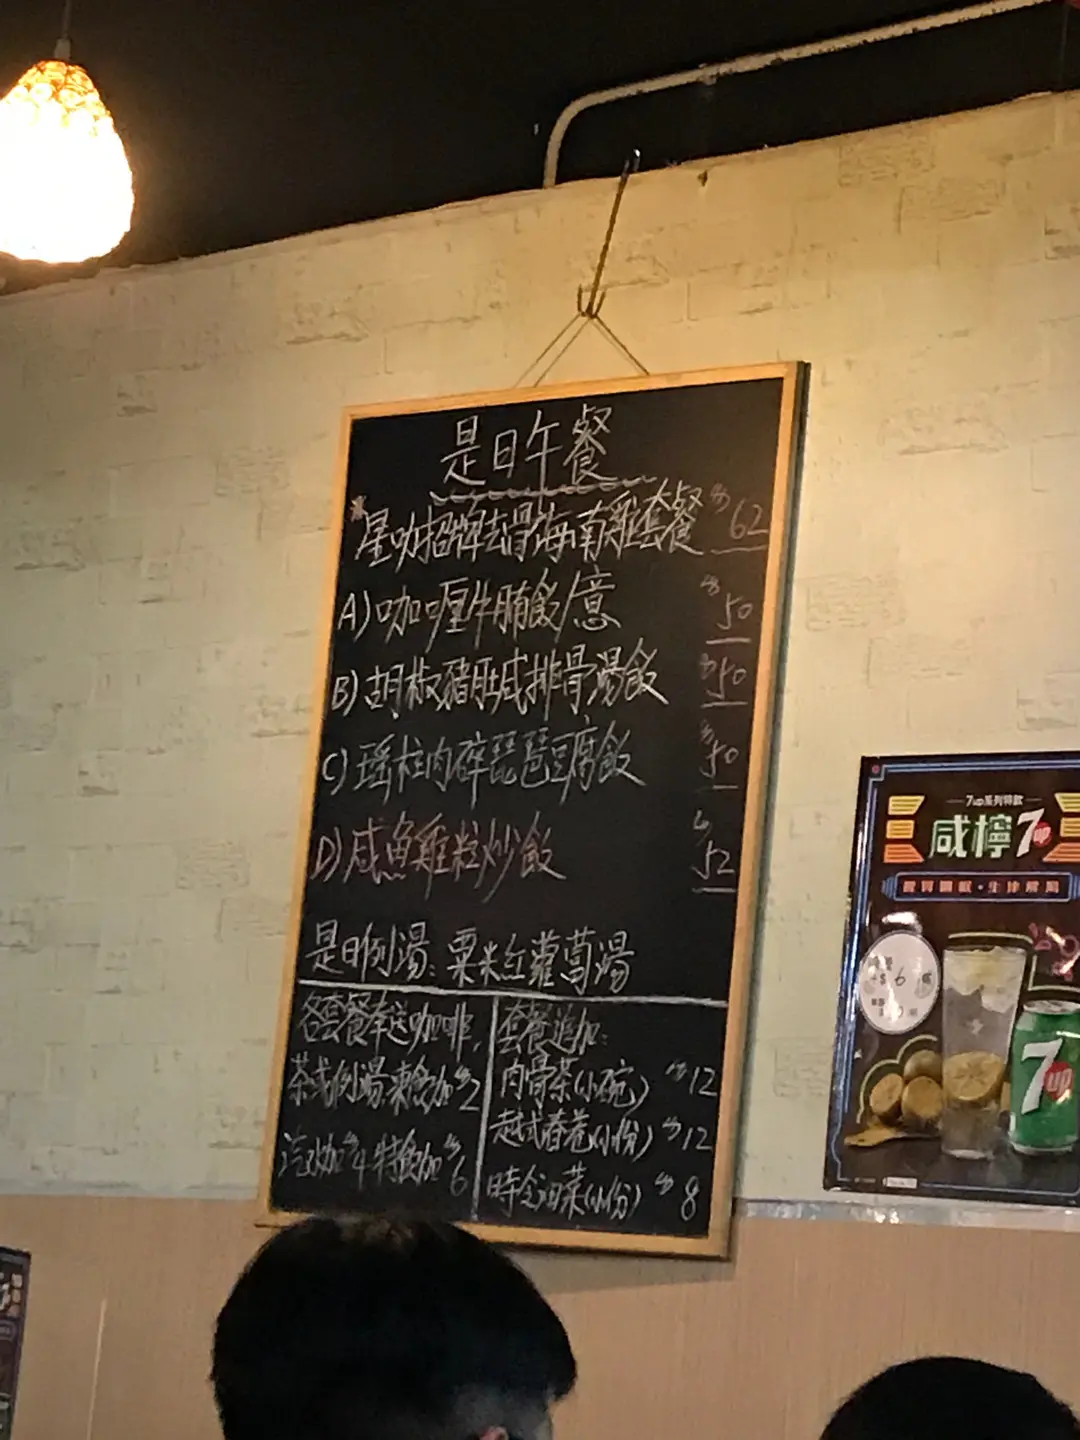 是日午餐
*星咖招牌去骨海南雞套餐 $62
A)咖喱牛腩飯/意 $50
B)胡椒豬肚咸排骨湯飯 $50
C)瑤柱肉碎琵琶豆腐飯 $50
D)咸魚雞粒炒飯 $52
是日例湯:粟米紅蘿蔔湯
各套餐奉送咖啡,
茶或例湯凍飲加$2
汽水加$4特飲加$6
套餐追加:
肉骨茶(小碗) $12
越式春卷(小份) $12
時令油菜(小份) $8
7up系列特飲
咸檸7up
7up